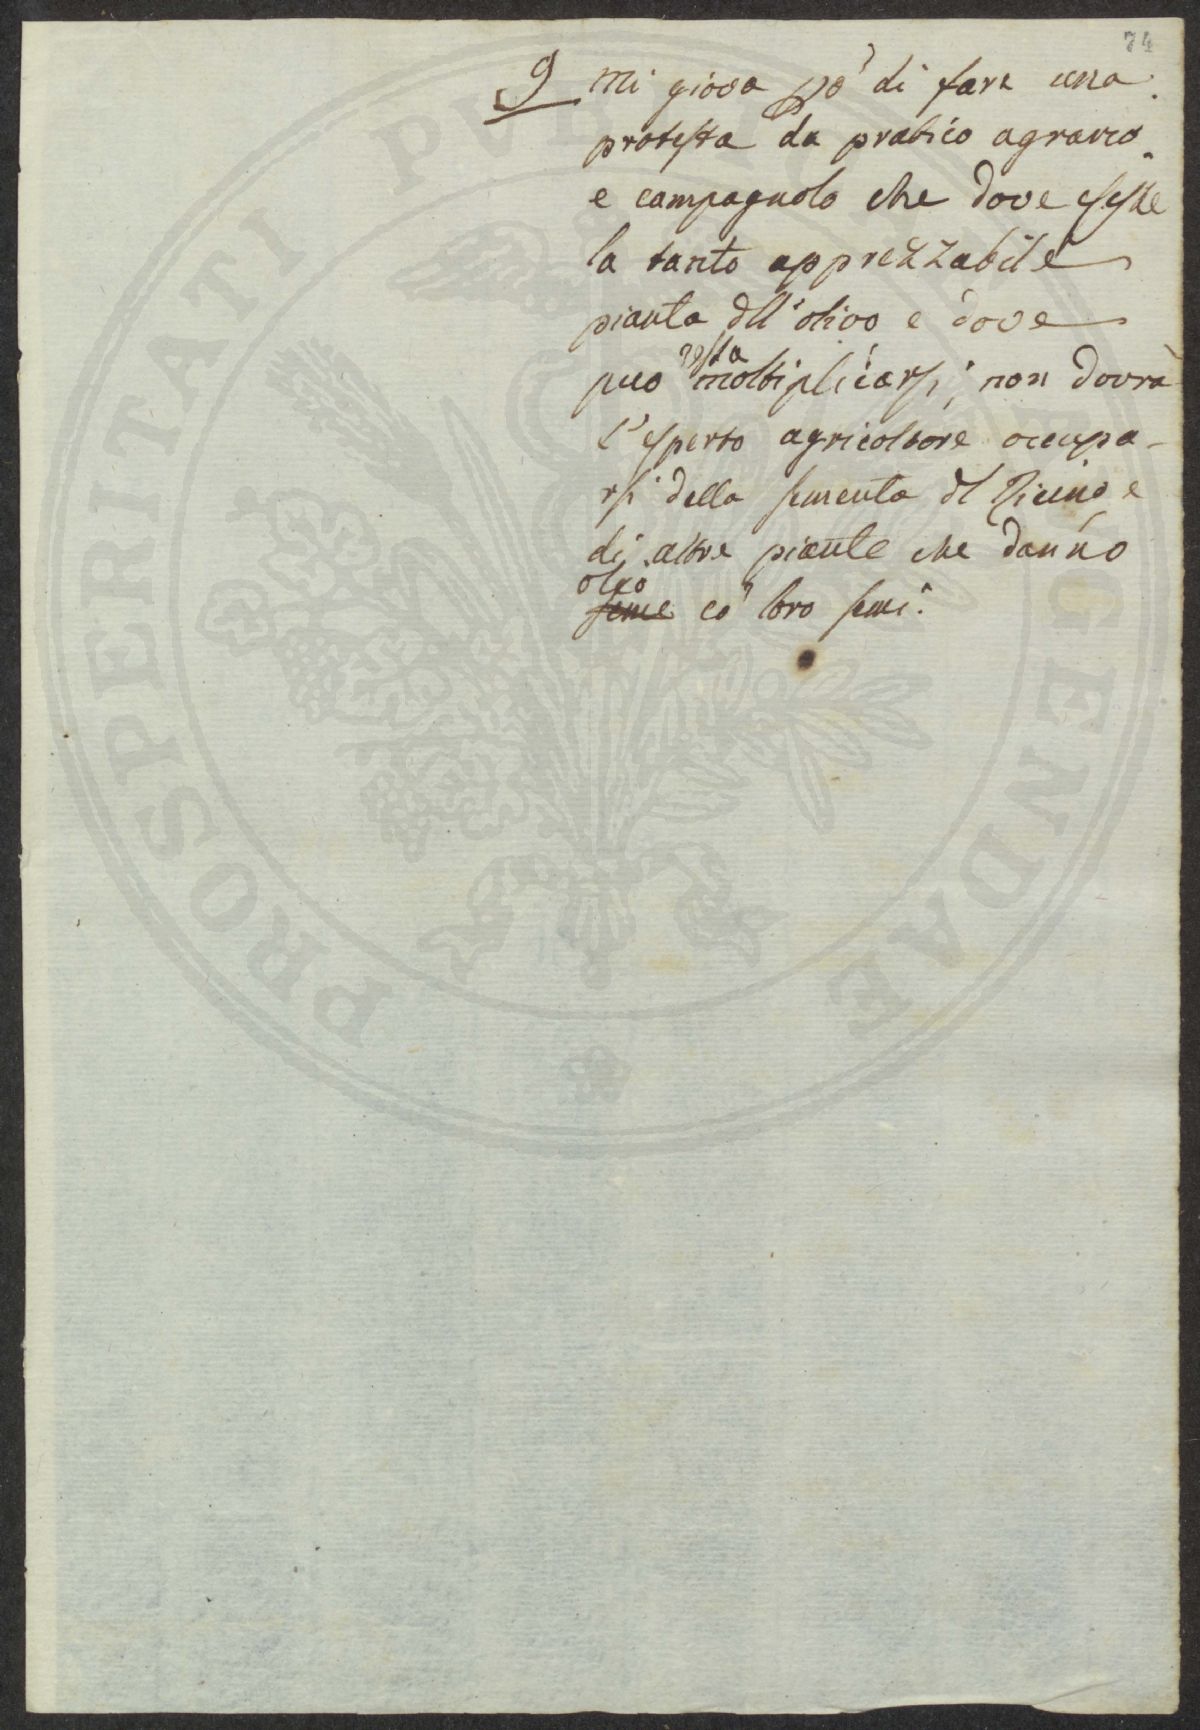 74
9 mi giova pò di fare una
protesta da pratico agrario
e campagnolo che dove esiste
la tanto apprezzabile
pianta dll'olivo e dove
può questa moltiplicarsi, non dovrà
l'esperto agricoltore occupa-
rsi della sementa dl Ricino e
di altre piante che danno
olio
seme co' loro semi.
PROSPERITATI PUBLICAE AUGENDAE